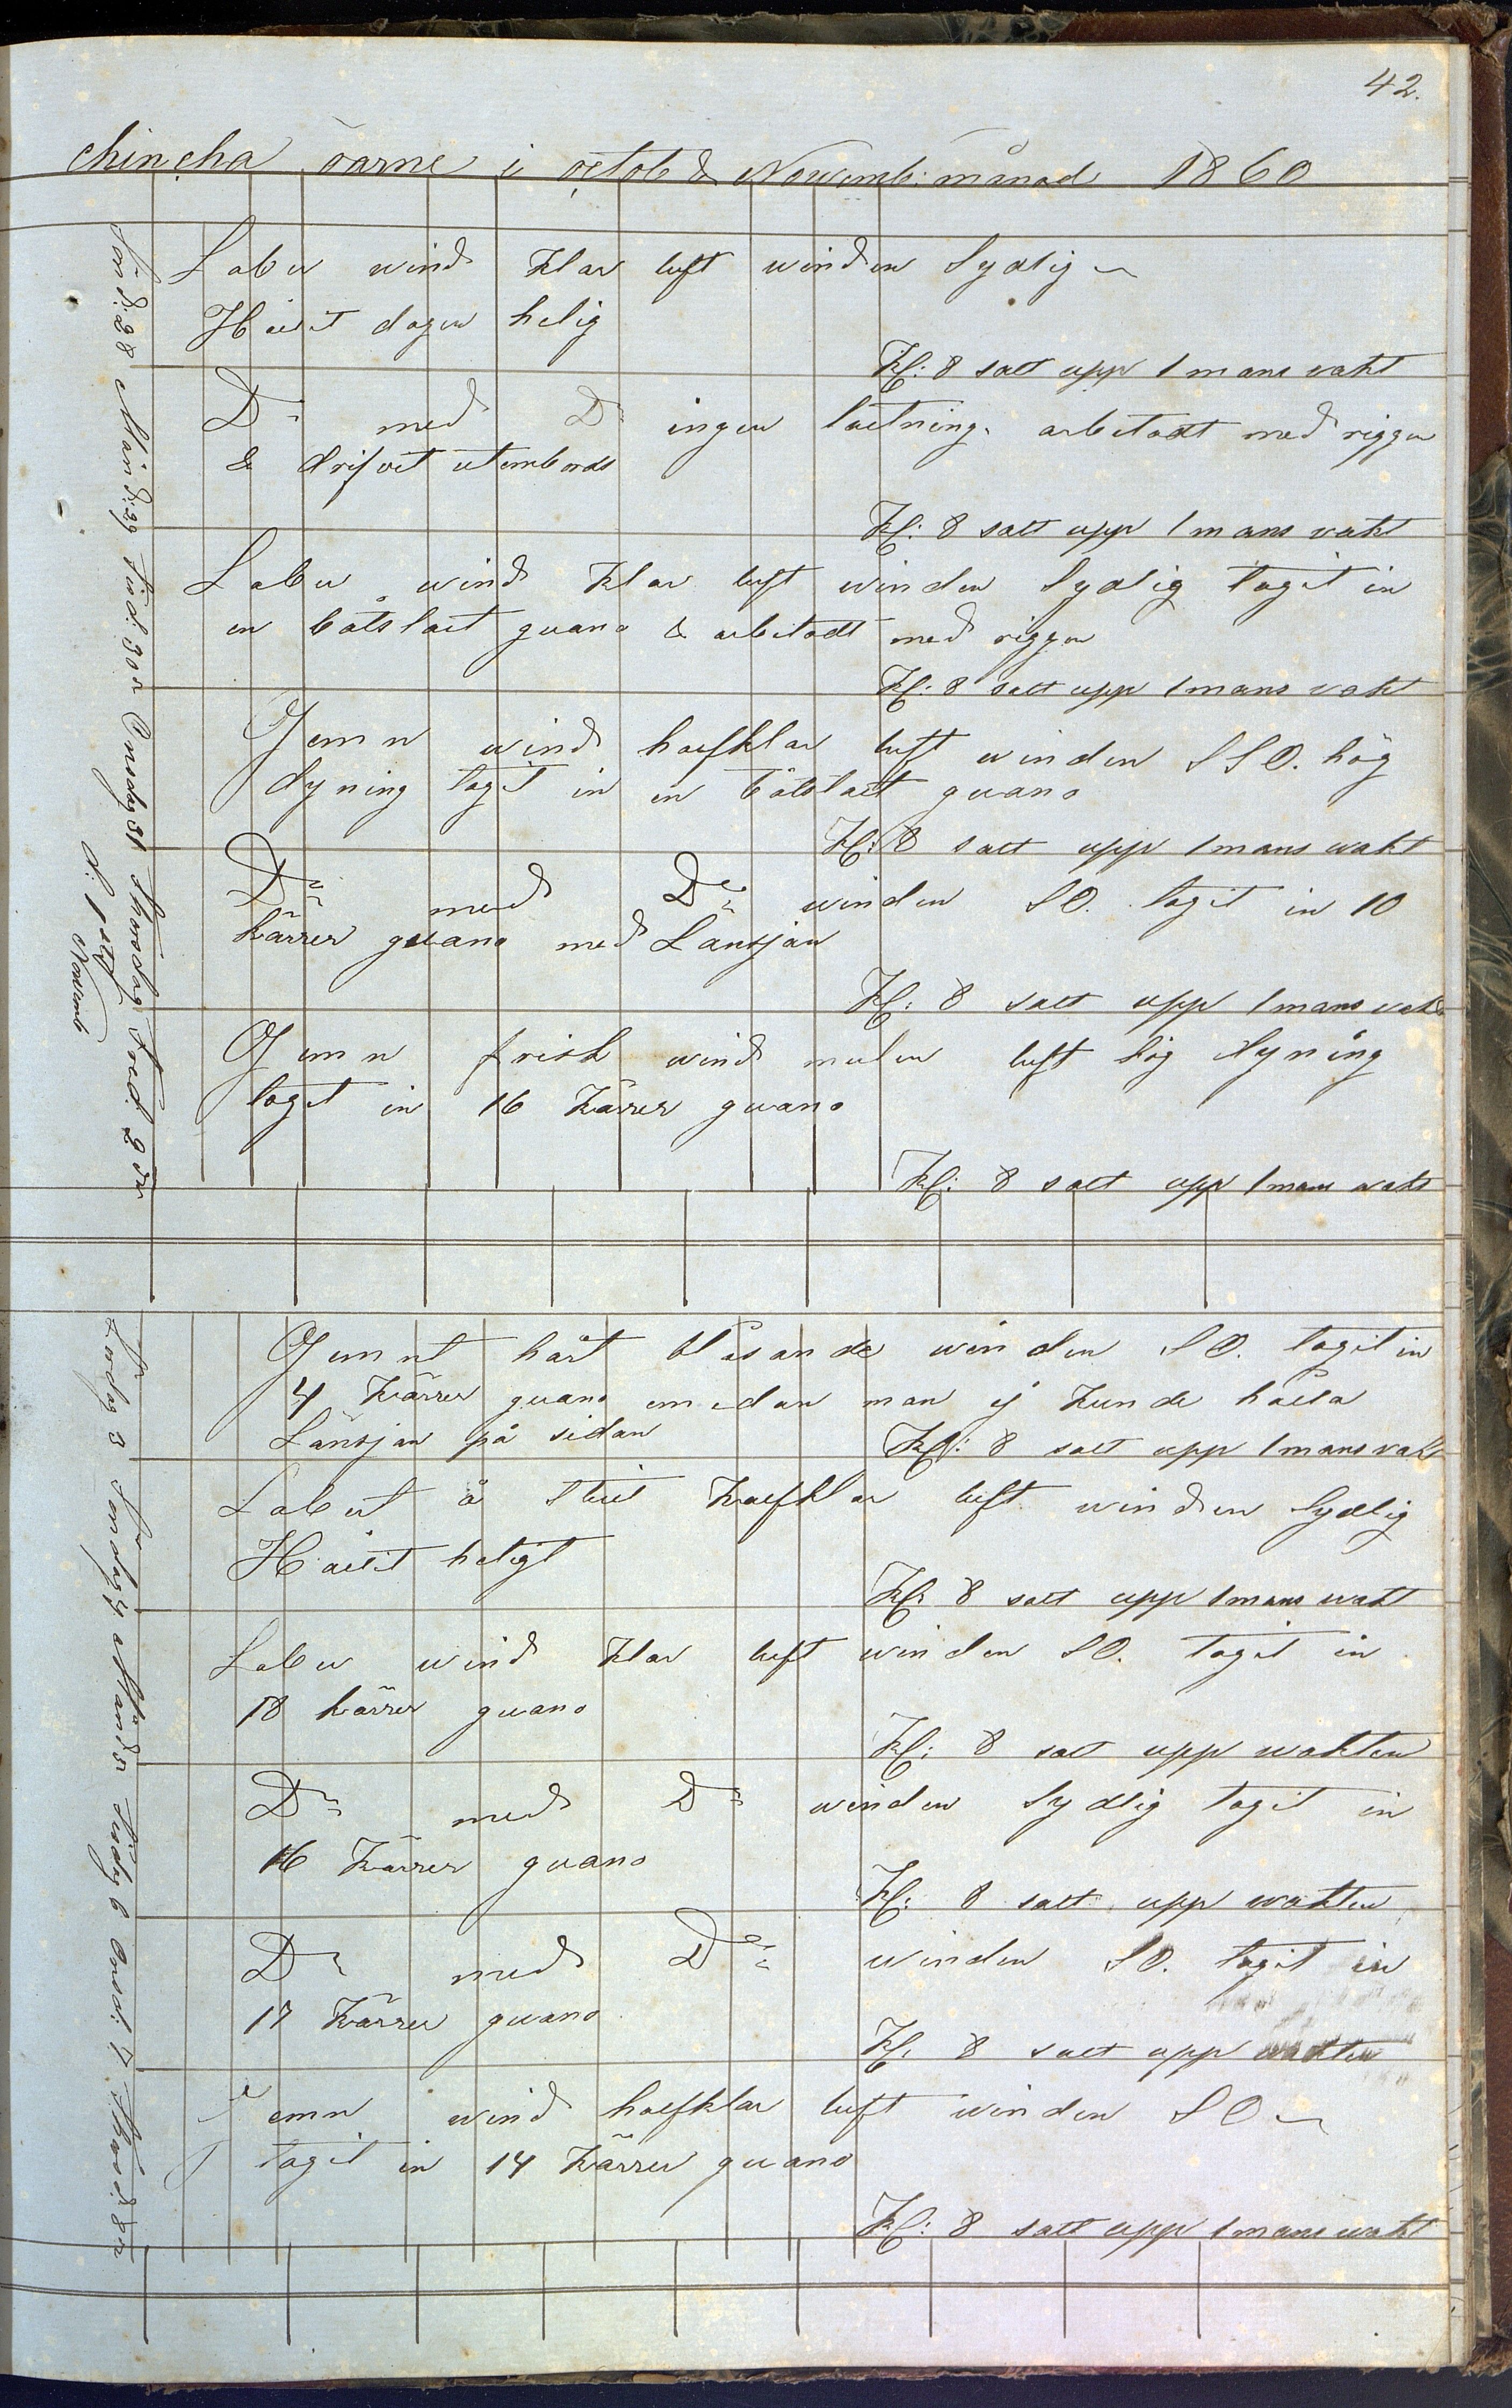 42.
Chincha öarne i octob & Novemb: månad 1860
Sönd: 28
Laber wind klar luft winden Sydlig
Hållit dagen helig
Kl: 8 satt upp 1 mans vakt
Månd: 29
Do med Do ingen lastning. arbetadt med riggen
& drifvit utombords
Kl: 8 satt upp 1 mans vakt
Tisd: 30
Laber wind klar luft winden Sydlig tagit in
en båtslast guano & arbetadt med riggen
Kl: 8 satt upp 1 mans vakt
Onsdag 31
Jemn wind halfklar luft winden SSO. hög
dyning tagit in en båtslast guano
Kl: 8 satt upp 1 mans wakt
Thorsdag
d: 1
Novemb
Do med Do winden SO. tagit in 10
kärrer guano med Lansjan
Kl: 8 satt upp 1 mans vakt
Fred: 2
Jemn frisk wind mulen luft hög dyning
tagit in 16 kärrer guano
Kl: 8 satt upp 1 mans wakt
Lördag 3
Jemnt hårt blåsande winden SO. tagit in
4 kärrer guano emedan man ej kunde hålla
Lansjan på sidan
Kl: 8 satt upp 1 mans vakt
Söndag 4
Labert å stilt halfklar luft winden Sydlig
Hållit heligt
Kl: 8 satt upp 1 mans wakt
Månd: 5
Laber wind klar luft winden SO. tagit in
18 kärrer guano
Kl: 8 satt upp wakten
Tisdag 6
Do med Do winden Sydlig tagit in
16 kärrer guano
Kl: 8 satt upp wakten
Onsd: 7
Do med Do winden SO. tagit in
17 kärrer guano
Kl: 8 satt upp wakten
Thorsd: 8
Jemn wind halfklar luft winden SO
tagit in 14 kärrer guano
Kl: 8 satt upp 1 mans wakt